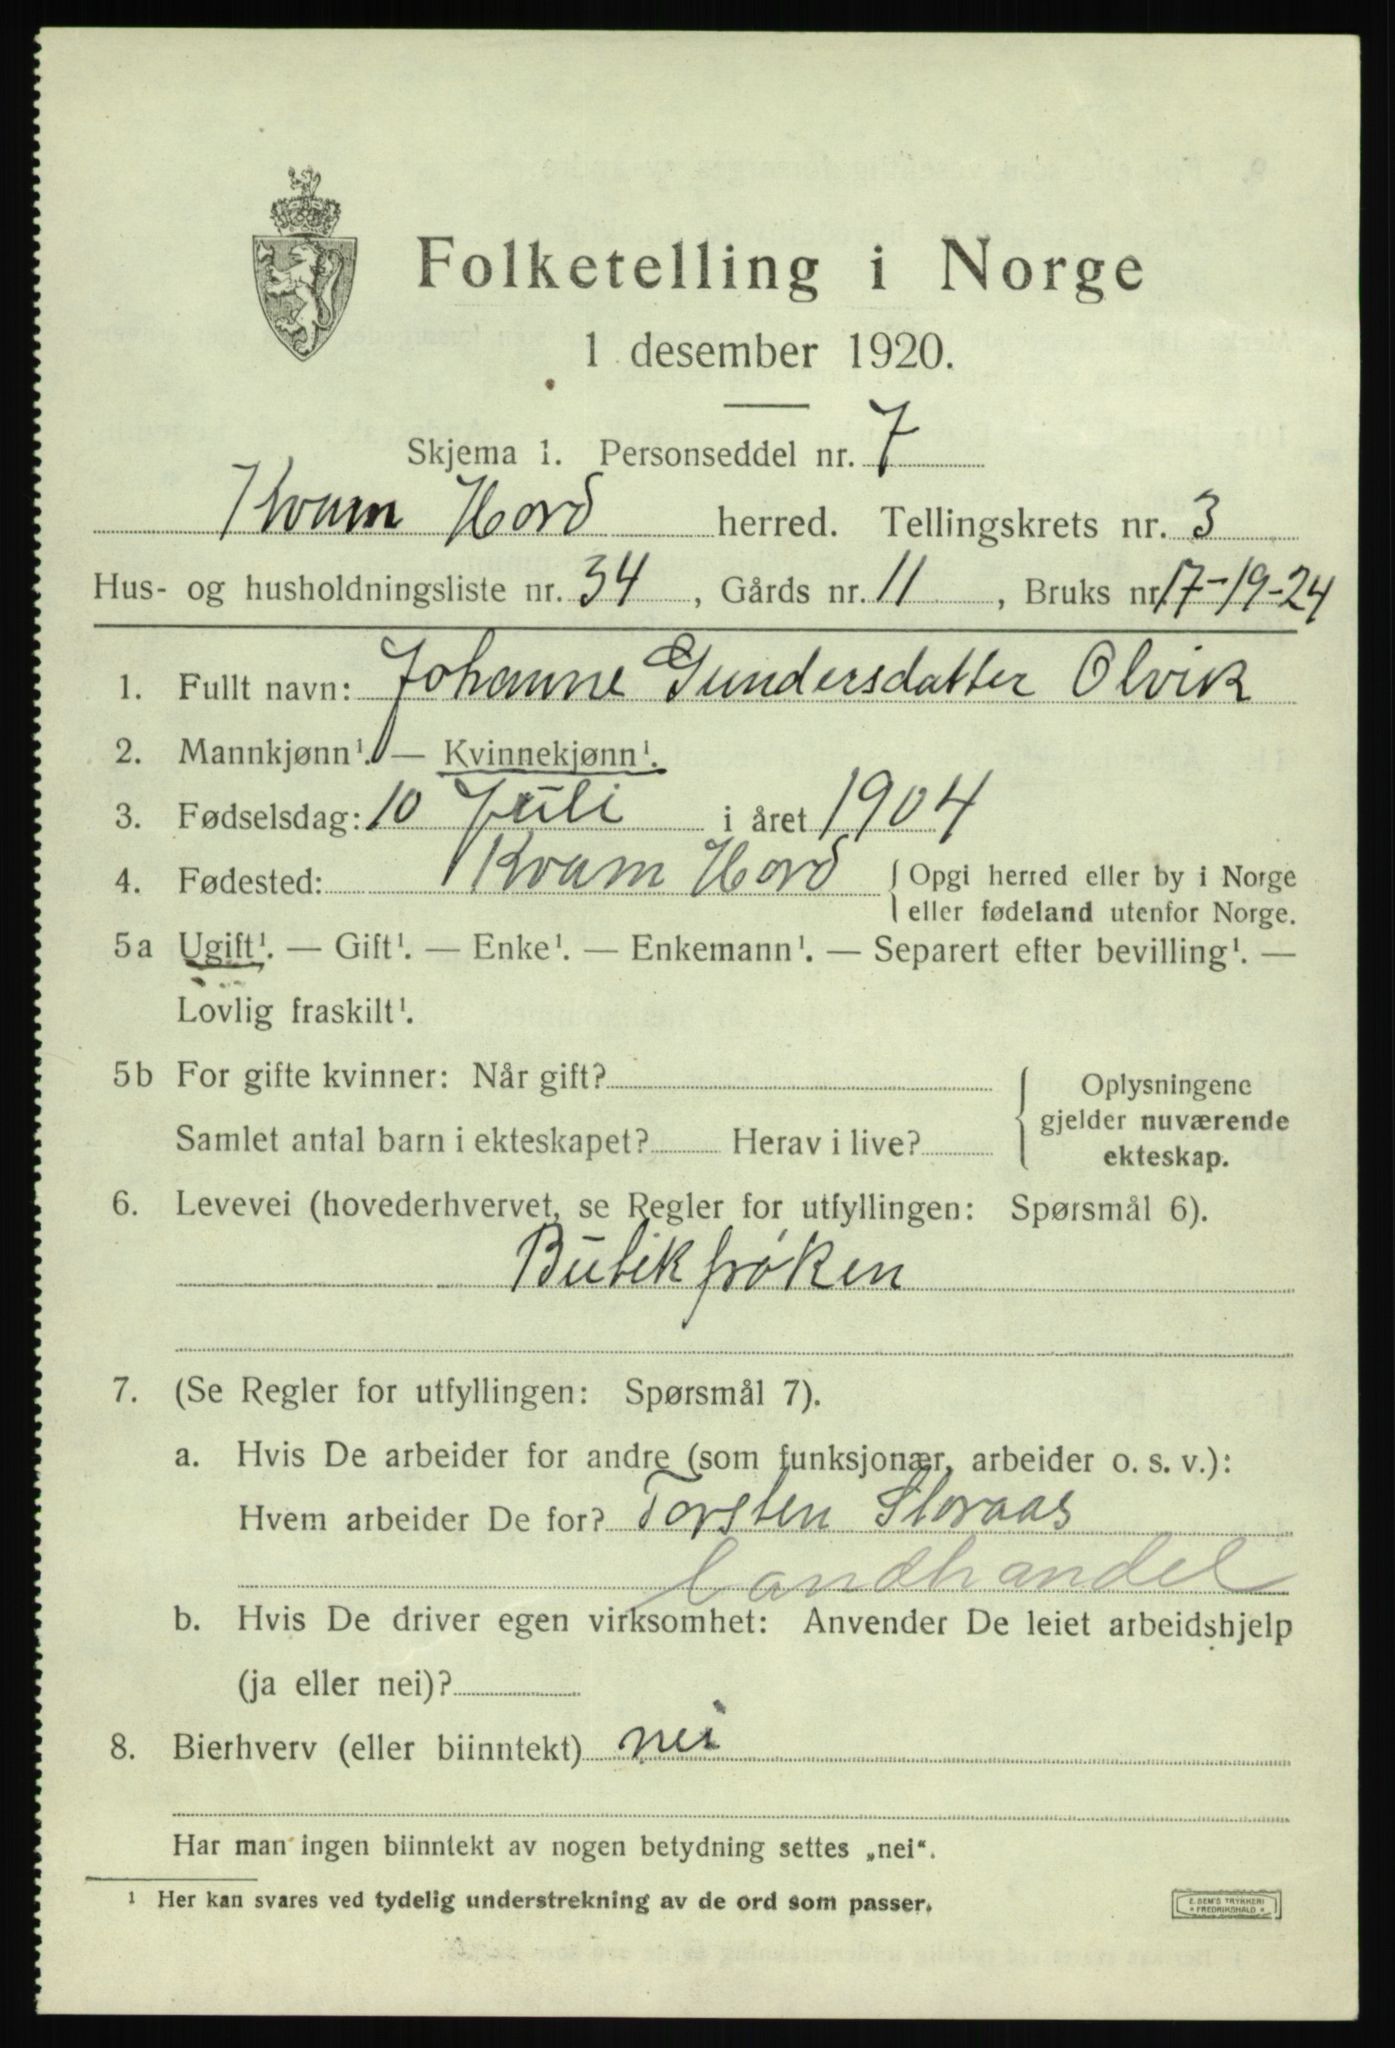 Folketelling i Norge
1 desember 1920.
Skjema 1. Personseddel nr. 7
Kvam Hord herred. Tellingskrets nr. 3
Hus- og husholdningsliste nr. 34, Gårds nr. 11, Bruks nr. 17-19-24
1. Fullt navn: Johanne Gundersdatter Olvik
2. Mannkjønn¹. — Kvinnekjønn¹.
3. Fødselsdag: 10 Juli i året 1904
4. Fødested: Kvam Hord { Opgi herred eller by i Norge
eller fødeland utenfor Norge.
5a Ugift¹. — Gift¹. — Enke¹. — Enkemann¹. — Separert efter bevilling¹. —
Lovlig fraskilt¹.
5b For gifte kvinner: Når gift?
Samlet antal barn i ekteskapet? Herav i live?
Oplysningene
gjelder nuværende
ekteskap.
6. Levevei (hovederhvervet, se Regler for utfyllingen: Spørsmål 6).
Butikfrøken
7. (Se Regler for utfyllingen: Spørsmål 7).
a. Hvis De arbeider for andre (som funksjonær, arbeider o. s. v.):
Hvem arbeider De for? Torsten Storaas
Landhandel
b. Hvis De driver egen virksomhet: Anvender De leiet arbeidshjelp
(ja eller nei)?
8. Bierhverv (eller biinntekt) nei
Har man ingen biinntekt av nogen betydning settes „nei“.
¹ Her kan svares ved tydelig understrekning av de ord som passer.
E. SEM'S TRYKKERI
* FREDRIKSHALD *